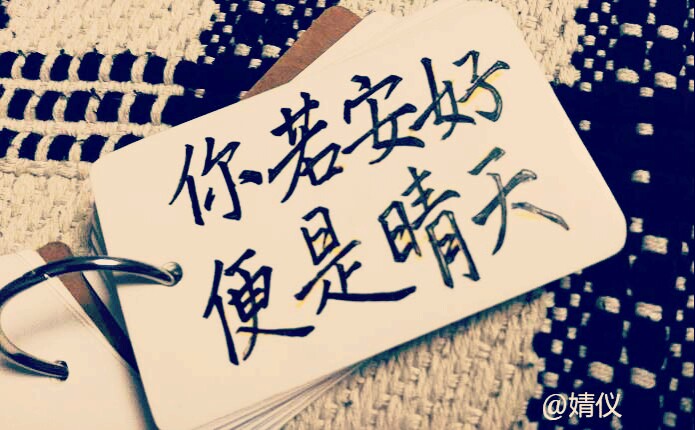 你若安好
便是晴天
@婧仪